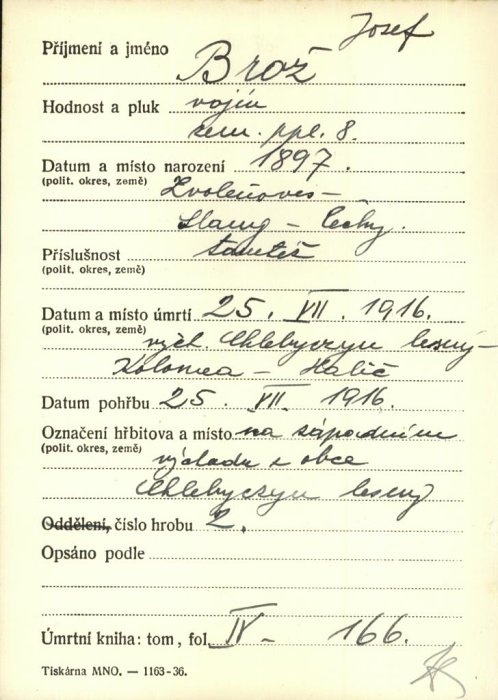 Josef
Příjmení a jméno Brož
Hodnost a pluk vojín
zem. ppl. 8.
Datum a místo narození 1897.
(polit. okres, země) Zvoleňoves –
Slaný – Čechy.
Příslušnost tamtéž
(polit. okres, země)
Datum a místo úmrtí 25. VII. 1916.
(polit. okres, země) Chlebyczyn lesný –
Kolomea – Halič
Datum pohřbu 25. VII. 1916.
Označení hřbitova a místo na západním
(polit. okres, země) východu z obce
Chlebyczyn lesný
Oddělení, číslo hrobu 2.
Opsáno podle
Úmrtní kniha: tom, fol. IV – 166.
Tiskárna MNO. — 1163-36.